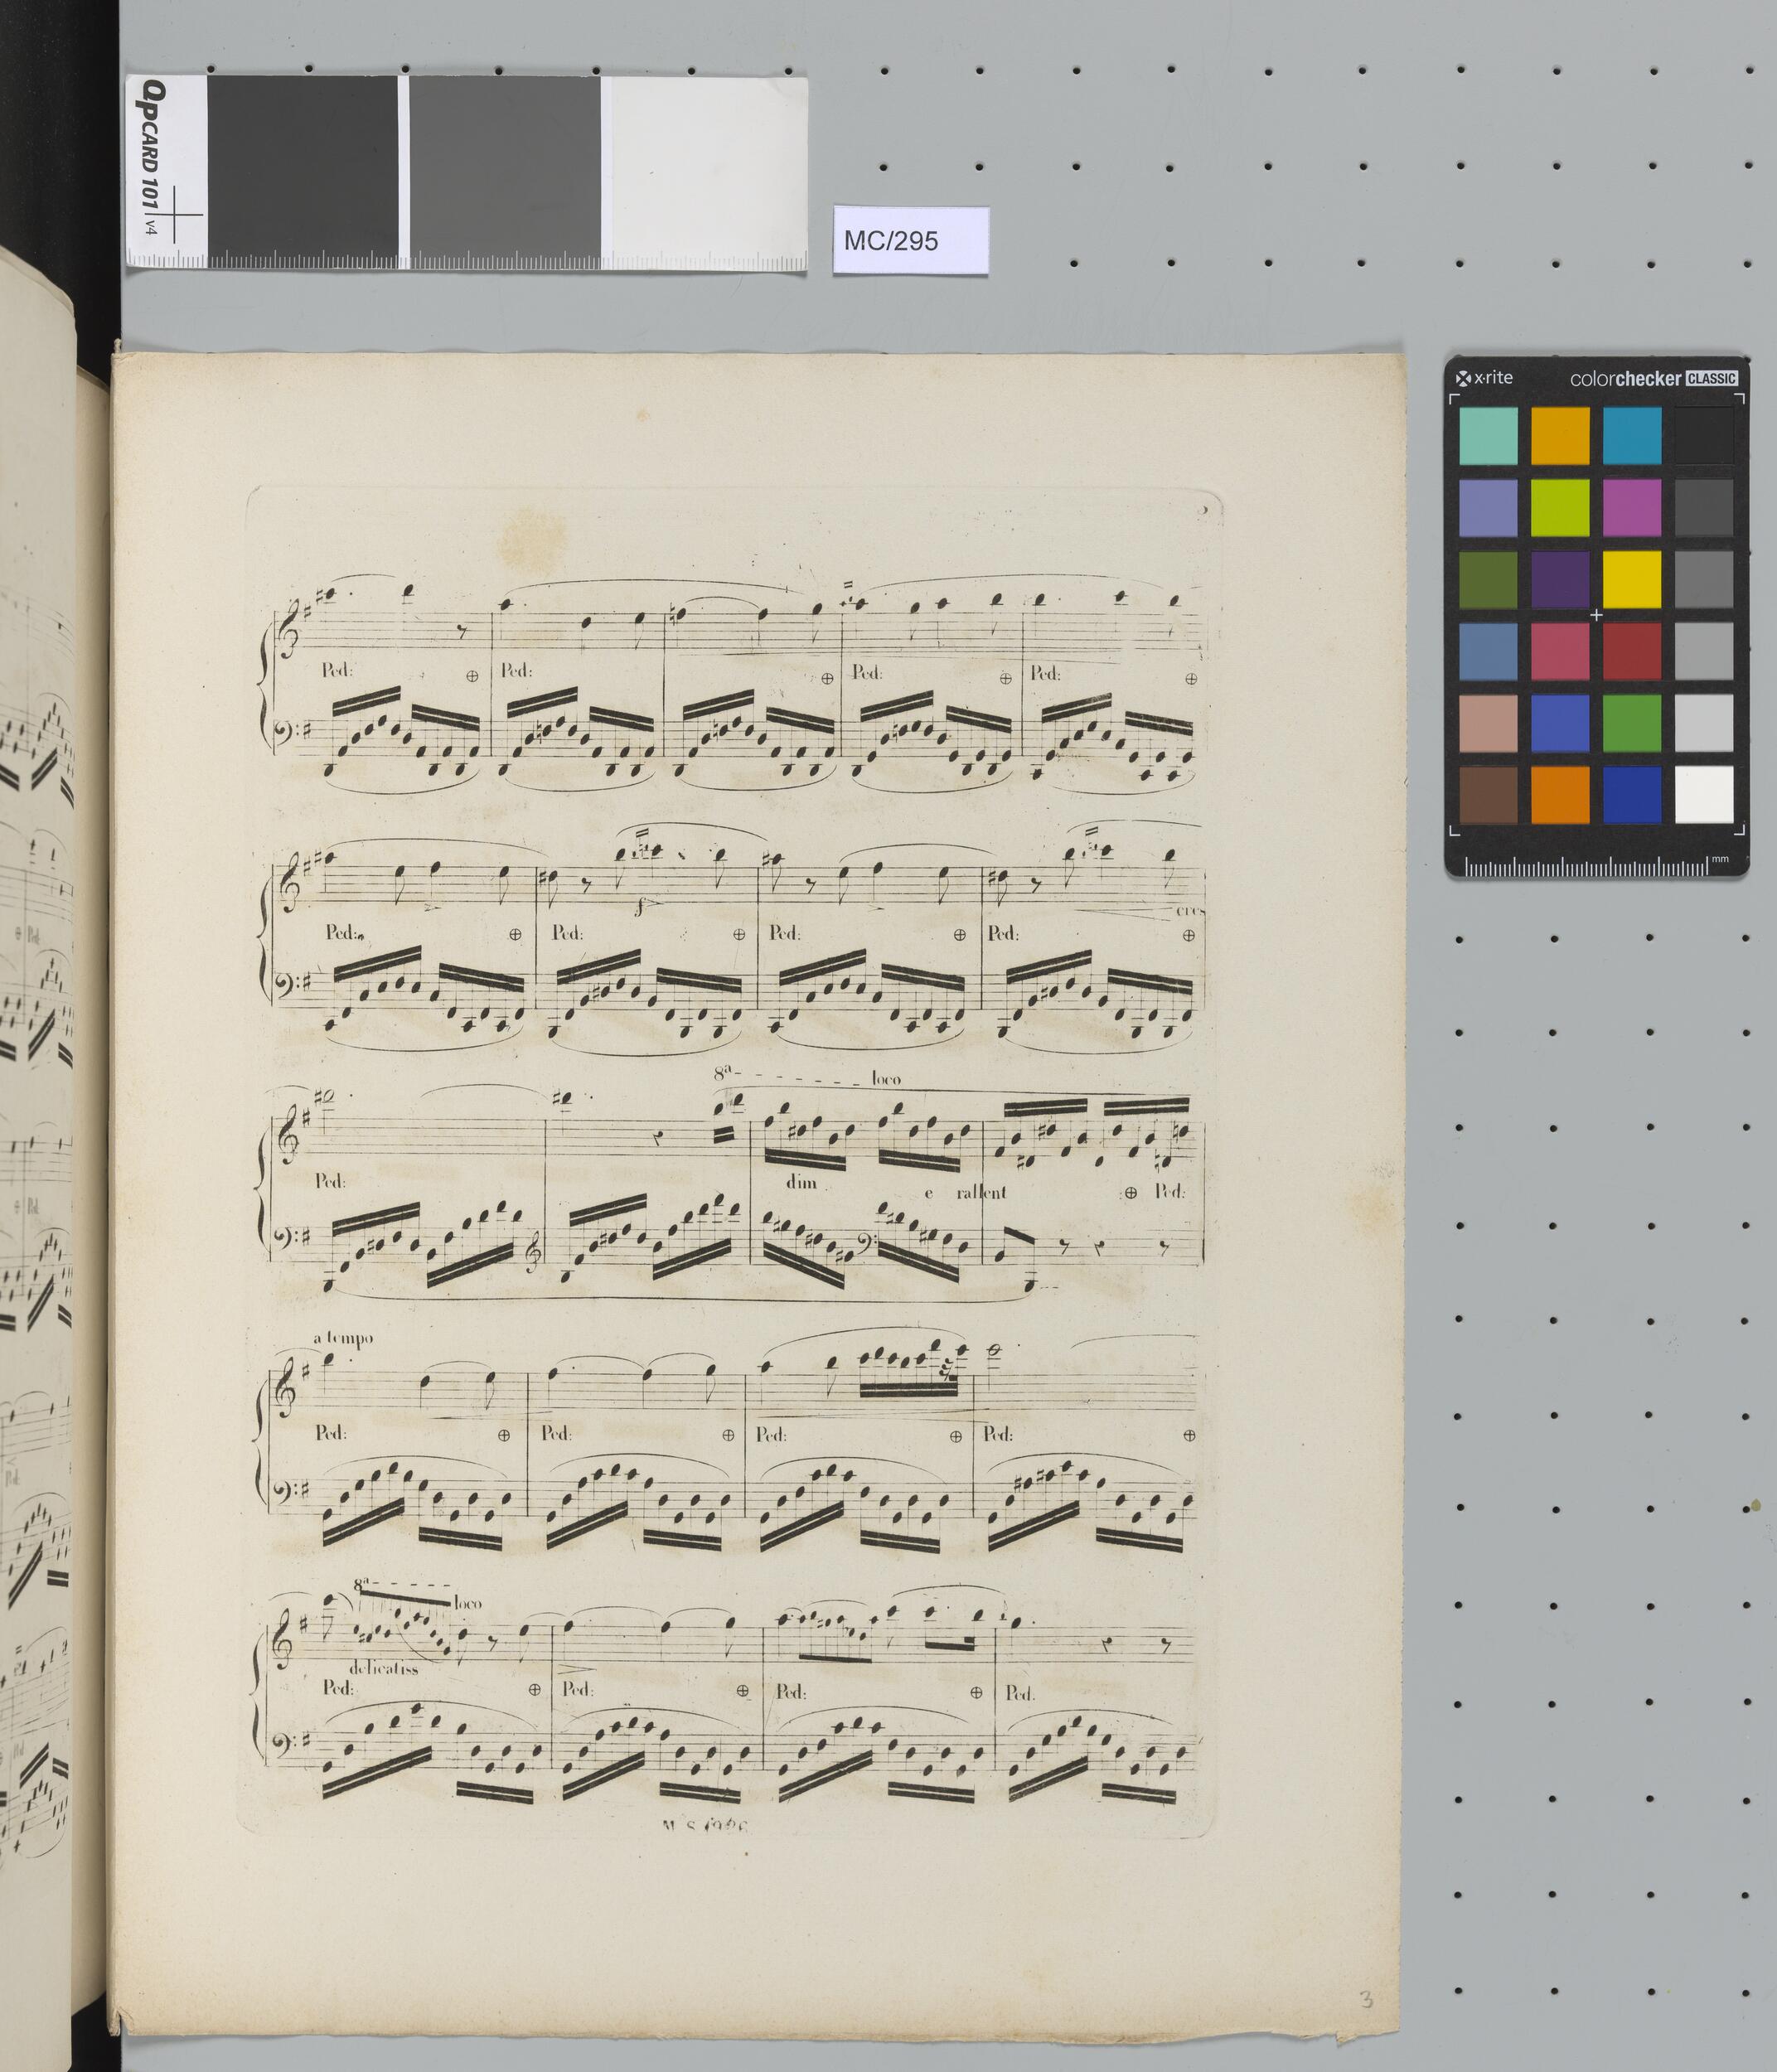 QPCARD 101 v4
MC/295
x·rite colorchecker CLASSIC
mm
Ped: ⊕ Ped: ⊕ Ped: ⊕ Ped: ⊕
f> cres
Ped: ⊕ Ped: ⊕ Ped: ⊕ Ped: ⊕
8a loco
Ped: dim e rallent ⊕ Ped:
a tempo
Ped: ⊕ Ped: ⊕ Ped: ⊕ Ped: ⊕
8a loco
delicatiss
Ped: ⊕ Ped: ⊕ Ped: ⊕ Ped.
M S
3